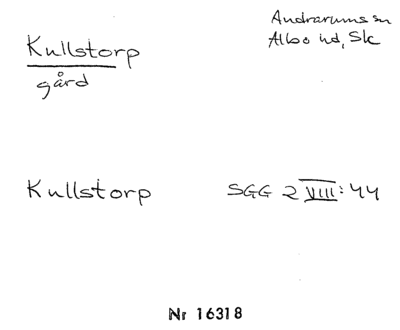 Kullstorp
gård
Andrarums sn
Albo hd, Sk
Kullstorp
SGG 2 VIII:44
Nr 16318